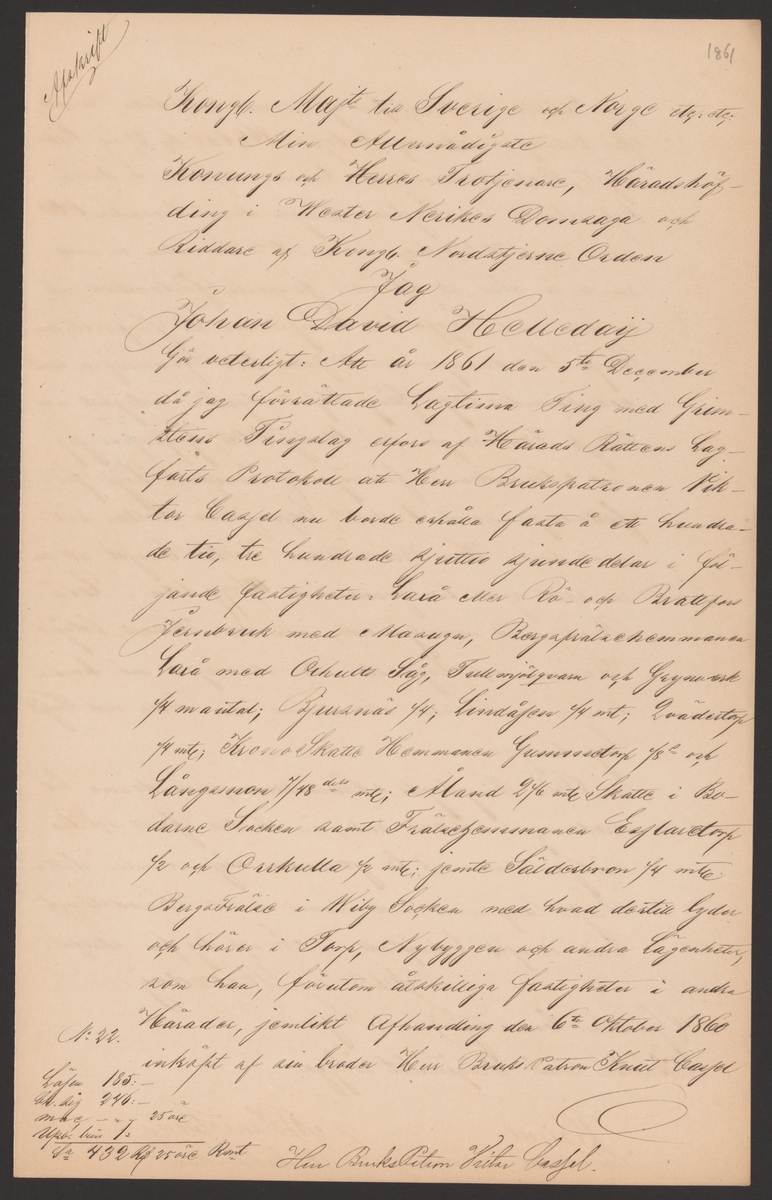 Afskrift
1861
Kongl. Majts till Sverige och Norge etc: etc:
Min Allernådigste
Konungs och Herres Trotjenare, Häradshöf-
ding i Wester Nerikes Domsaga och
Riddare af Kongl. Nordstjerne Orden
Jag
Johan David Helleday
Gör veterligt: Att år 1861 den 5te December
då jag förrättade Lagtima Ting med Grim-
stens Tingslag erfors af Härads Rättens Lag-
farts Protokoll att Herr Brukspatronen Vik-
tor Cassel nu borde erhålla fasta å ett hundra-
de tio, tre hundrade sjuttio sjundedelar i föl-
jande fastigheter: Laxå eller Rö- och Brattfors
Jernbruk med Masugn, Bergsfrälsehemmanen
Laxå med Orhult Såg, Tullmjölqvarn och Grynverk
1/4 mantal; Bjursnäs 1/4; Lindåsen 1/4 mt; Qvädertorp
1/4 mtl; KronoSkatte Hemmanen Gummetorp 1/8 och
Långsmon 7/48 dels mtl; Åland 2/6 mtl Skatte i Bo-
darne Socken samt Frälsehemmanen Esplaretorp
1/2 och Orrkulla 1/2 mtl; jemte Sälderbron 1/4 mtl
BergsFrälse i Wiby Socken med hvad dertill lyder
och hörer i Torp, Nybyggen och andra Lägenheter,
som han, förutom åtskilliga fastigheter i andra
Härader, jemlikt Afhandling den 6te Oktober 1860
inköpt af sin broder Herr Bruks Patron Knut Cassel
No 22.
Lösen 185:-
246:-
25 öre
1:
Sa 432 Rd 25 öre Rmt
Herr BruksPatron Victor Cassel.